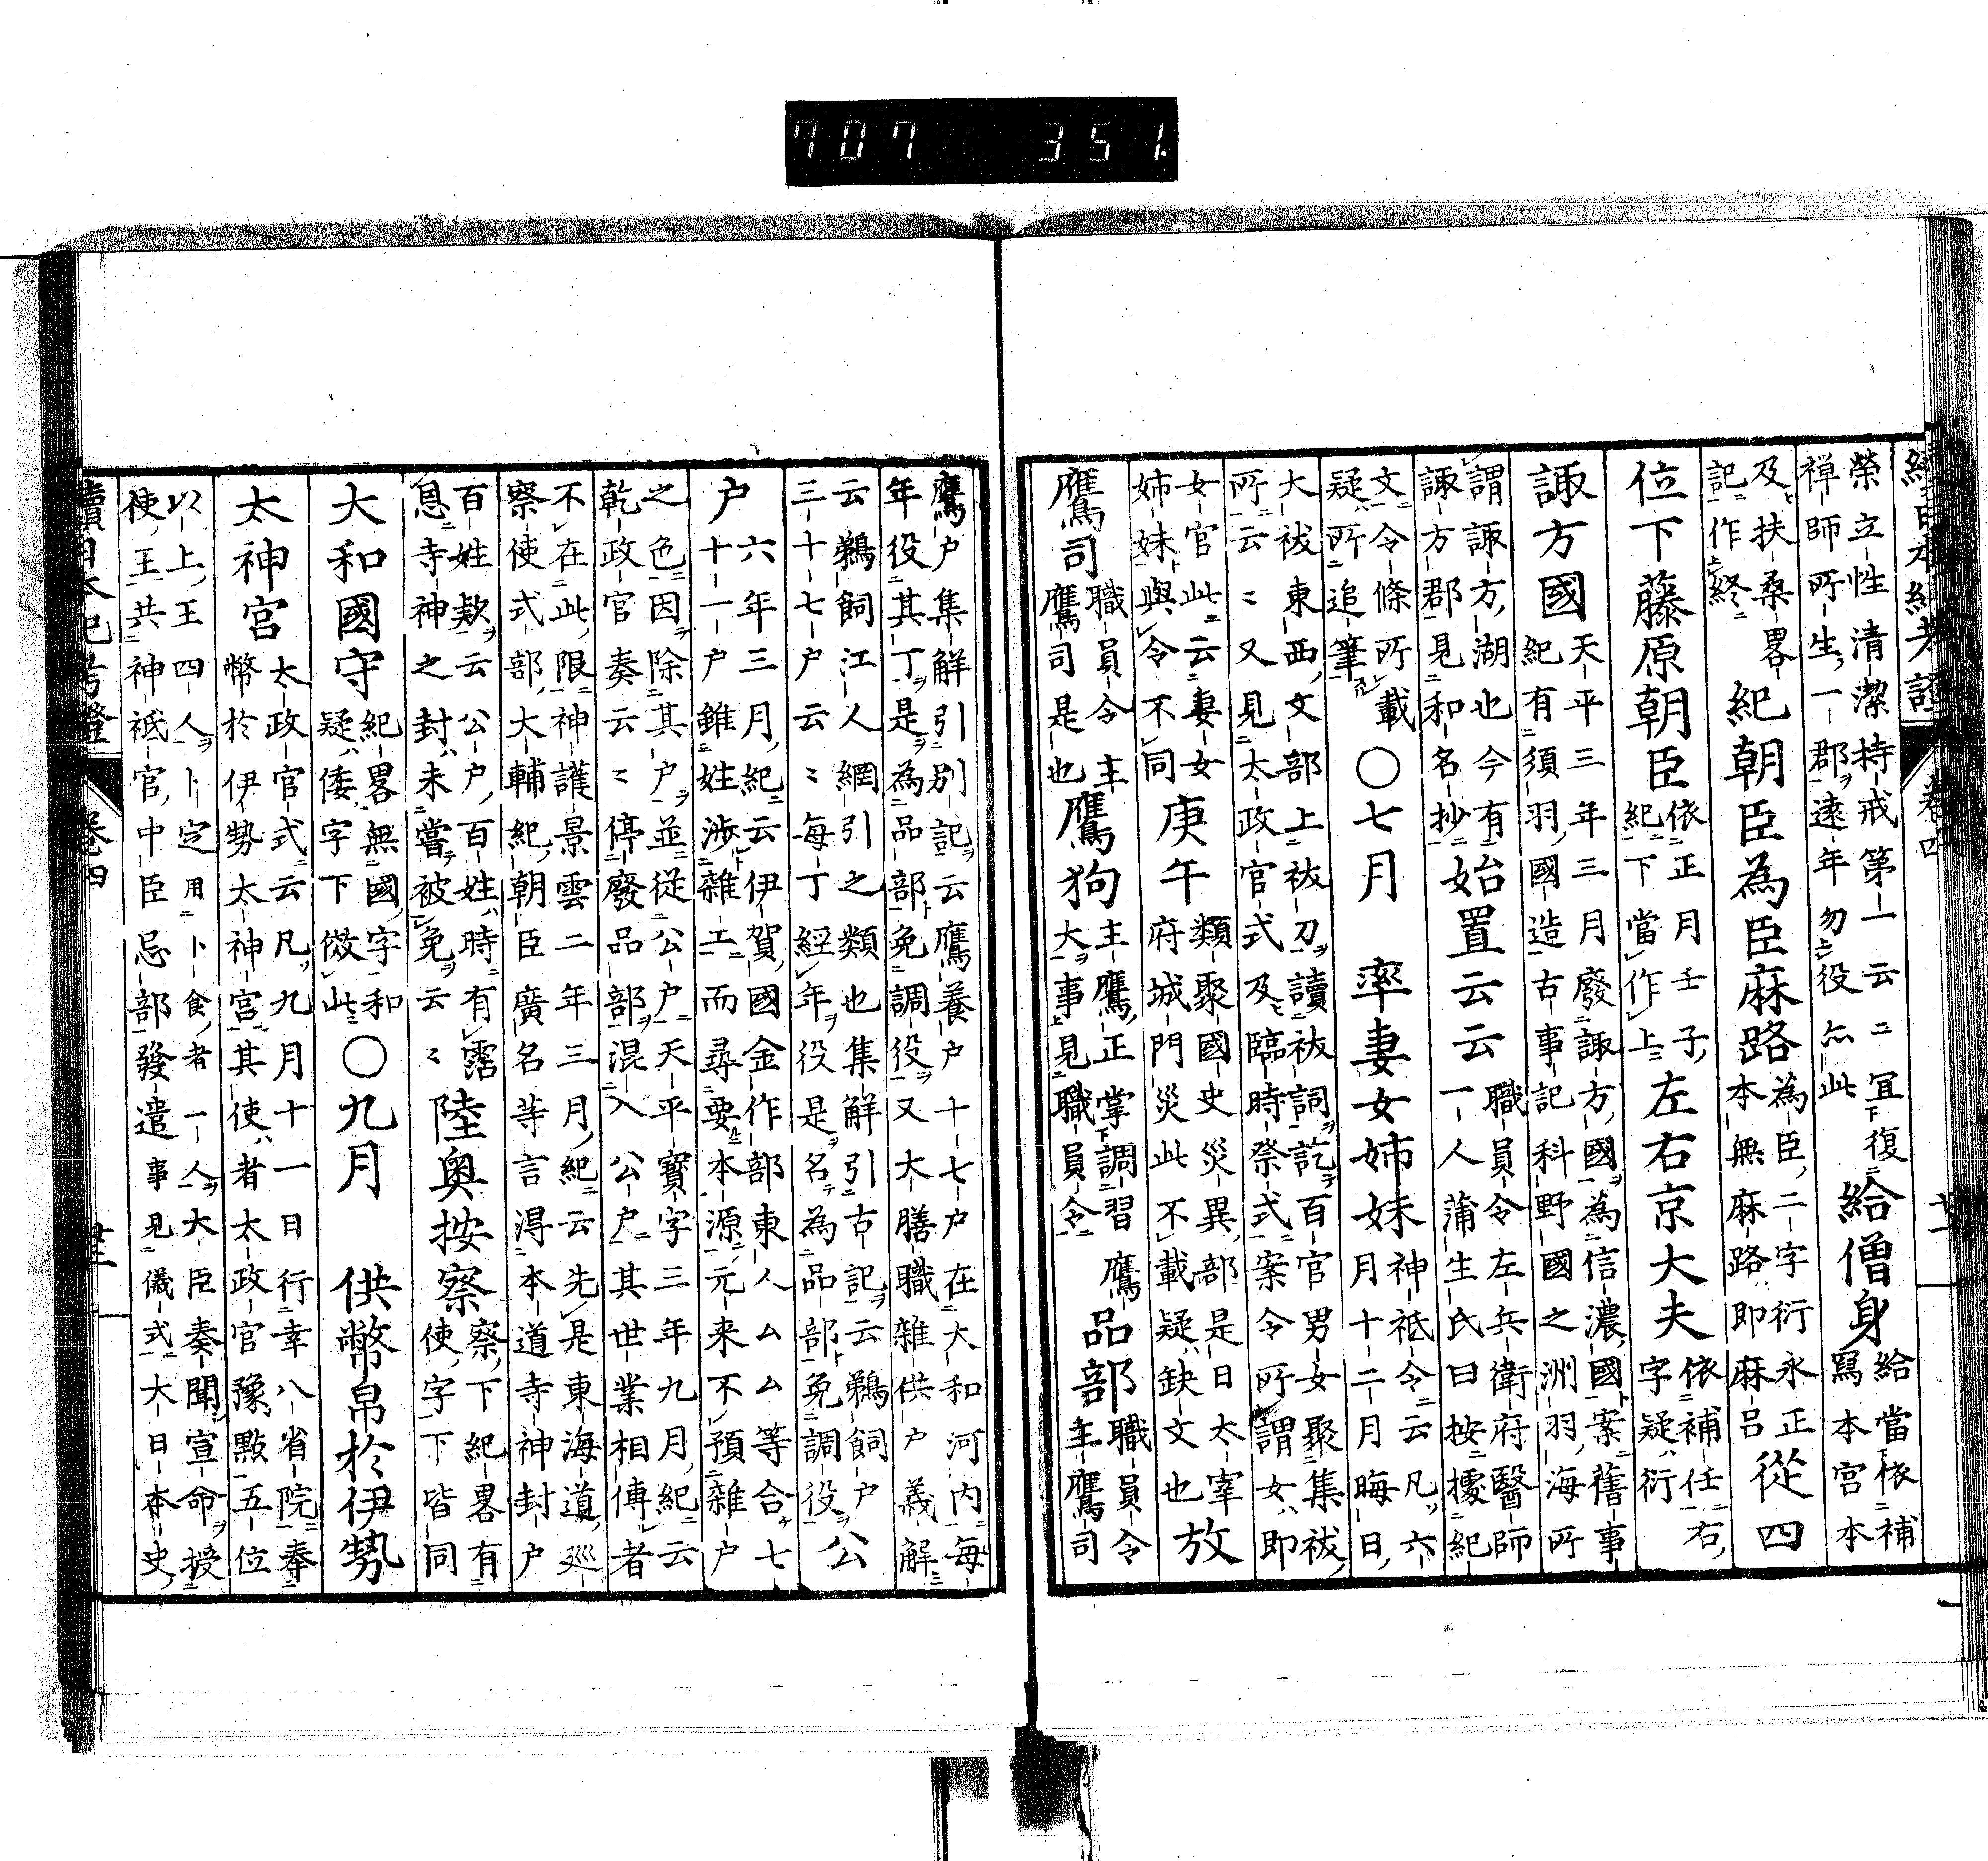 續日本紀考證 卷四 廿一
榮立性清潔持戒第一云ニ宜復
禅師所生一郡遠年勿役亦此
給僧身
給當依補
寫本宮本
及扶桑畧
記作終
紀朝臣為臣麻路
為臣二字衍永正
本無麻路即麻呂
從四
位下藤原朝臣
依正月壬子
紀下當作上
左右京大夫
依補任右
字疑衍
諏方國
天平三年三月廢諏方國為信濃國案舊事
紀有須羽國造古事記科野國之洲羽海所
謂諏方湖也今有
諏方郡見和名抄
始置云云
職員令左兵衛府醫師
一人蒲生氏曰按據紀
文令條所載
疑所追筆
〇七月 率妻女姉妹
神祇令云凡六
月十二月晦日
大祓東西文部上祓刀讀祓詞訖百官男女聚集祓
所云〻又見太政官式及臨時祭式案令所謂女即
女官此云妻女
姉妹與令不同
庚午
類聚國史災異部是日太宰
府城門災此不載疑缺文也
放
鷹司
職員令主
鷹司是也
鷹狗
主鷹正掌調習鷹
犬事見職員令
品部
職員令
主鷹司
鷹户集解引別記云鷹養户十七户在大和河内毎
年役其丁是為品部免調役又大膳職雜供户義解
云鵜飼江人網引之類也集解引古記云鵜飼户
三十七户云〻毎丁經年役是名為品部免調役
公
户
六年三月紀云伊賀國金作部東人ムム等合七
十一户雖姓渉雜工而尋要本源元来不預雜户
之色因除其户並從公户天平寳字三年九月紀云
乾政官奏云〻停廢品部混入公户其世業相傳者
不在此限神護景雲二年三月紀云先是東海道巡
察使式部大輔紀朝臣廣名等言得本道寺神封户
百姓欵云公户百姓時有霑
息寺神之封未嘗被免云〻
陸奥按察
察下紀畧有
使字下皆同
大和國守
紀畧無國字和
疑倭字下傚此
〇九月 供幣帛於伊勢
太神宮
太政官式云凡九月十一日行幸八省院奉
幣於伊勢太神宮其使者太政官豫點五位
以上王四人卜定用卜食者一人大臣奏聞宣命授
使王共神祇官中臣忌部發遣事見儀式大日本史
續日本紀考證 卷四